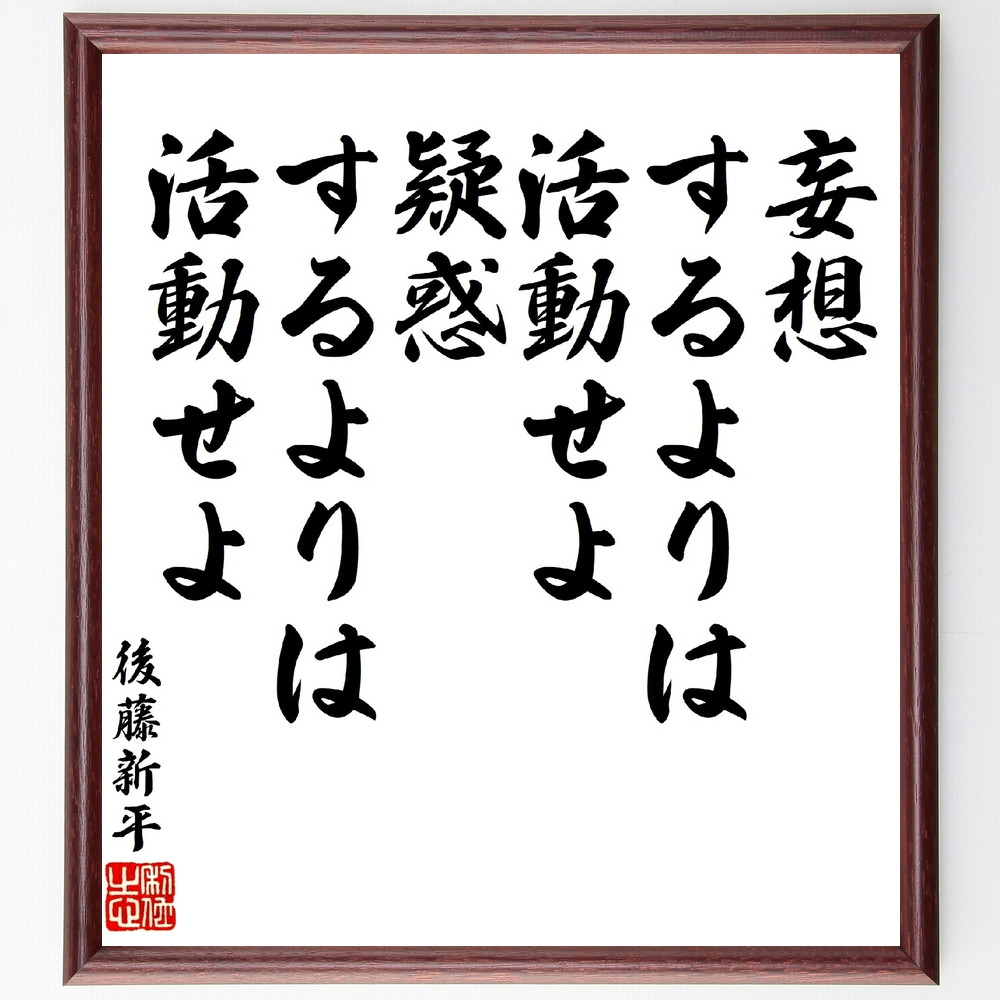 妄想
するよりは
活動せよ
疑惑
するよりは
活動せよ
後藤新平